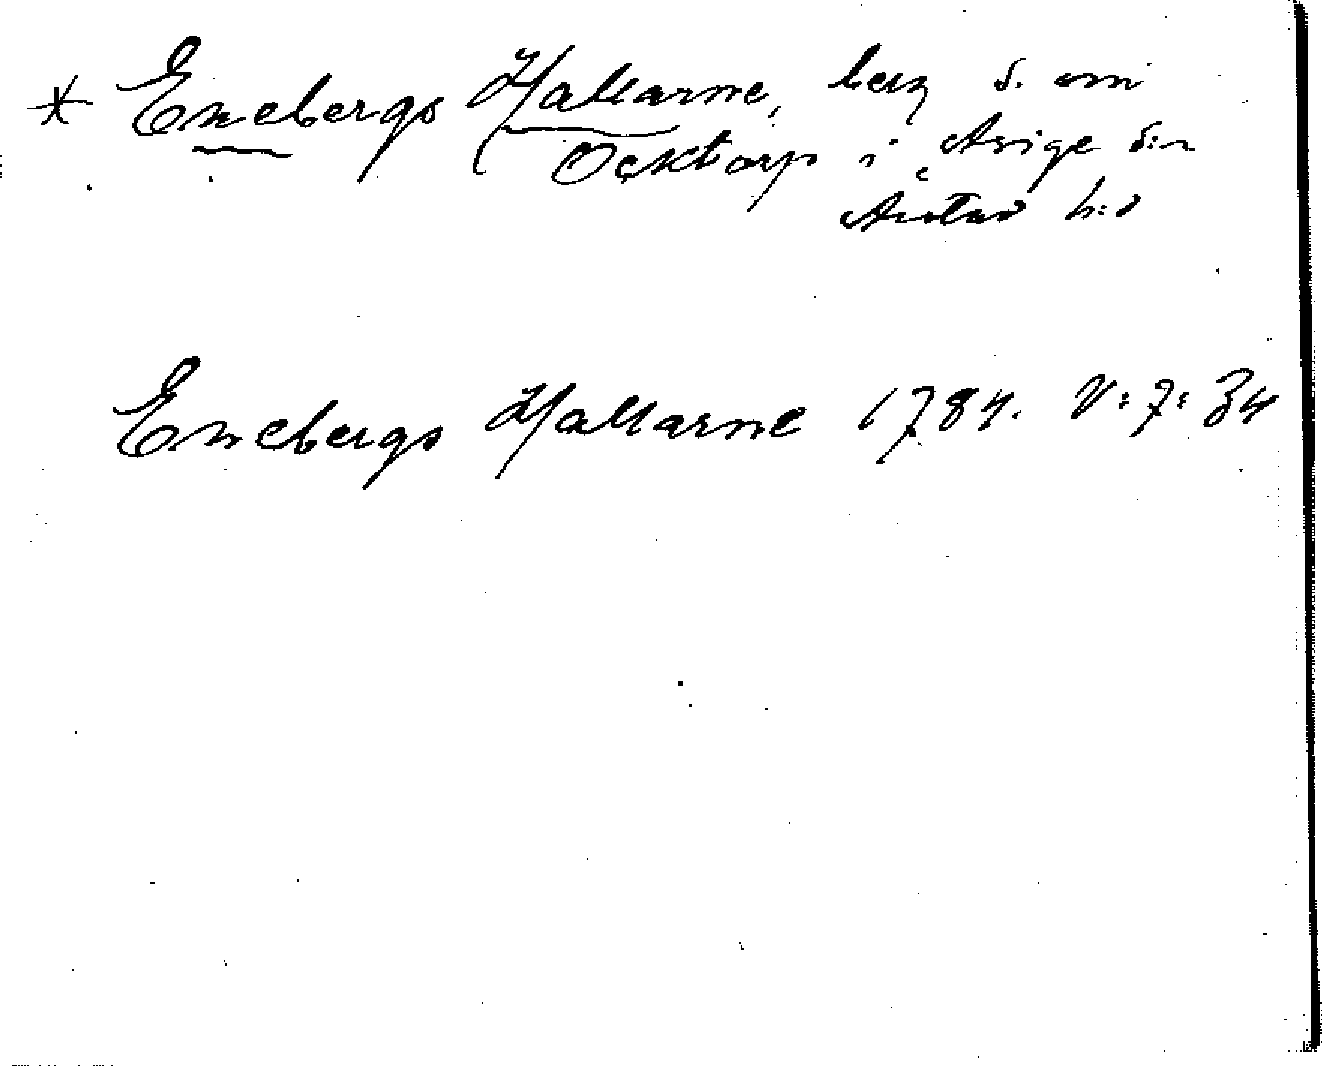 * Enebergs Hallarne, berg s. om
Ocktorp i Årige s:n
Årstad h:d
Enebergs Hallarne 1784. V:7:34